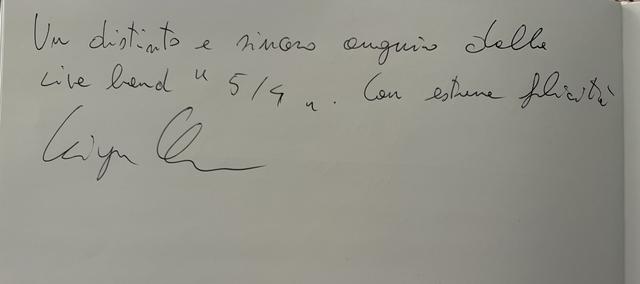 Un distinto e sincero augurio dalla
Live band " 5/4 ". Con estrema felicità